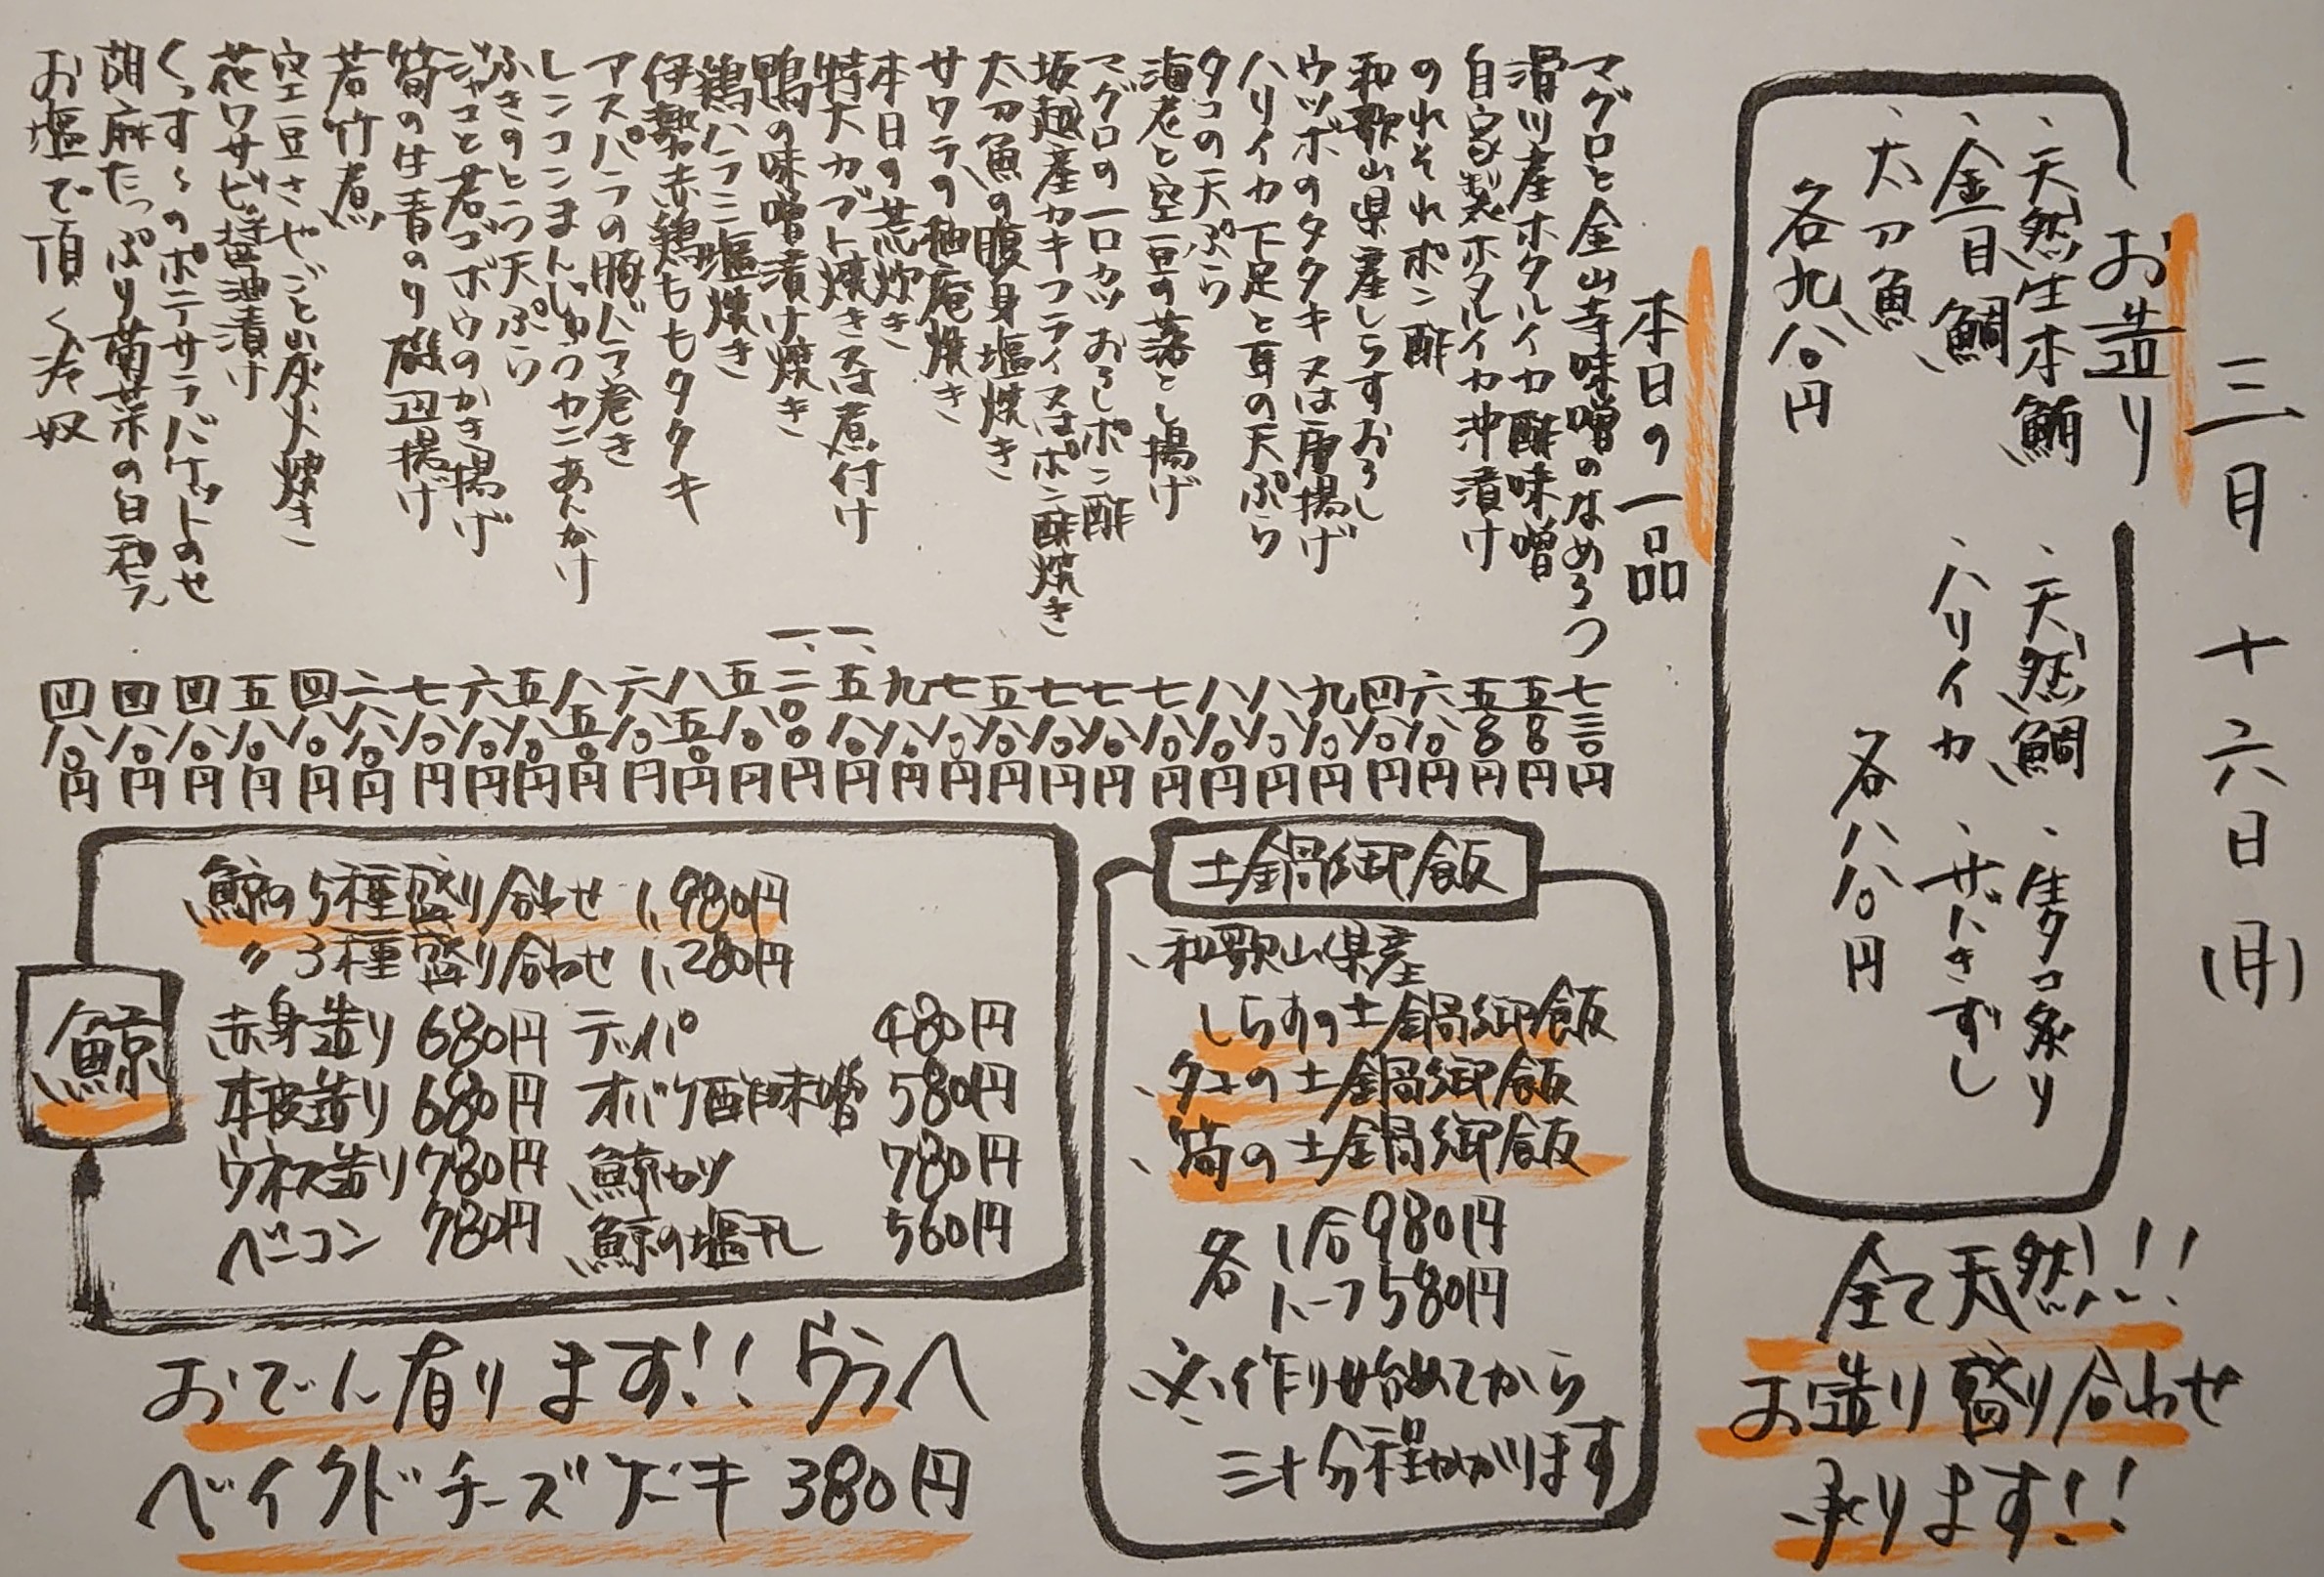 三月十六日(月)
お造り
、天然生本鮪 、天然鯛 、生タコ炙り
、金目鯛 、ハリイカ 、サバきずし
、太刀魚
各九八〇円 各八八〇円
全て天然!!!
お造り盛り合わせ
承ります!!
本日の一品
マグロと金山寺味噌のなめろう 七三〇円
滑川産ホタルイカ酢味噌 五八〇円
自家製ホタルイカ沖漬け 五八〇円
のれそれポン酢 六八〇円
和歌山県産しらすおろし 四八〇円
ウツボのタタキ又は唐揚げ 九八〇円
ハリイカ下足と耳の天ぷら 八八〇円
タコの天ぷら 八八〇円
海老と空豆の落とし揚げ 七八〇円
マグロの一口カツおろしポン酢 七八〇円
坂越産カキフライ又はポン酢焼き 七八〇円
太刀魚の腹身塩焼き 五八〇円
サワラの柚庵焼き 七八〇円
本日の荒炊き 九八〇円
特大カブト焼き又は煮付け 一、五八〇円
鴨の味噌漬け焼き 一、二〇〇円
鶏ハラミ塩焼き 五八〇円
伊勢赤鶏ももタタキ 八五〇円
アスパラの豚バラ巻き 六八〇円
レンコンまんじゅうカニあんかけ 八五〇円
ふきのとう天ぷら 五八〇円
ジャコと若ゴボウのかき揚げ 六八〇円
筍の生青のり磯辺揚げ 七八〇円
若竹煮 六八〇円
空豆さやごと炭火焼き 四八〇円
花ワサビ醤油漬け 五八〇円
くっす〜のポテサラバケットのせ 四八〇円
胡麻たっぷり菊菜の白和え 四八〇円
お塩で頂く冷奴 四八〇円
土鍋御飯
、和歌山県産
しらすの土鍋御飯
、タコの土鍋御飯
、筍の土鍋御飯
各 1合 980円
ハーフ 580円
※作り始めてから
三十分程かかります
鯨
鯨の5種盛り合わせ 1,980円
〃3種盛り合わせ 1,280円
赤身造り 680円 テッパ 480円
本皮造り 680円 オバケ酢味噌 580円
ウネス造り 780円 鯨カツ 780円
ベーコン 780円 鯨の塩干し 560円
おでん有ります!! ウラへ
ベイクドチーズケーキ 380円